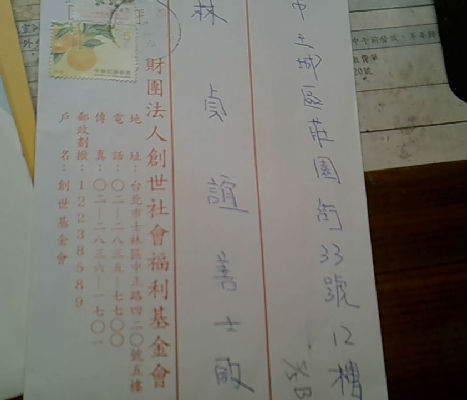 中土城區莊園街33號12樓
林貞誼善士啟
財團法人創世社會福利基金會
地址:台北市士林區中正路四二〇號五樓
電話:〇二—二八三五—七七〇〇
傳真:〇二—二八三六—一七〇一
郵政劃撥:12238589
戶名:創世基金會